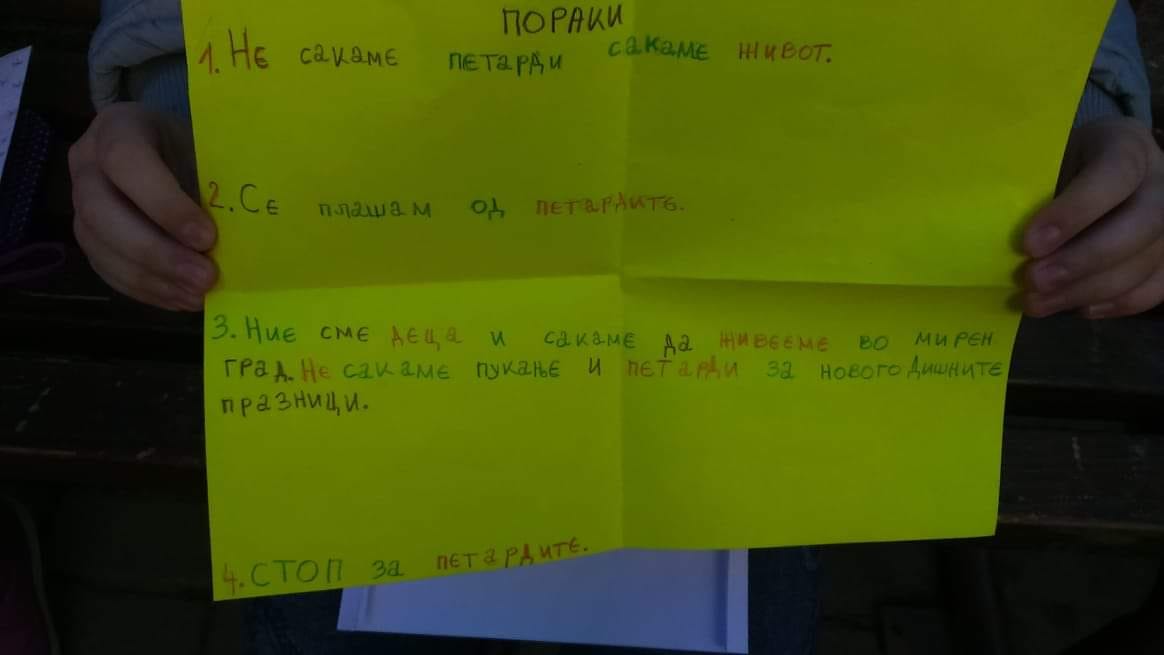 ПОРАКИ
1. Не сакаме петарди сакаме живот.
2. Се плашам од петардите.
3. Ние сме деца и сакаме да живееме во мирен
град. Не сакаме пукање и петарди за новогодишните
празници.
4. СТОП за петардите.